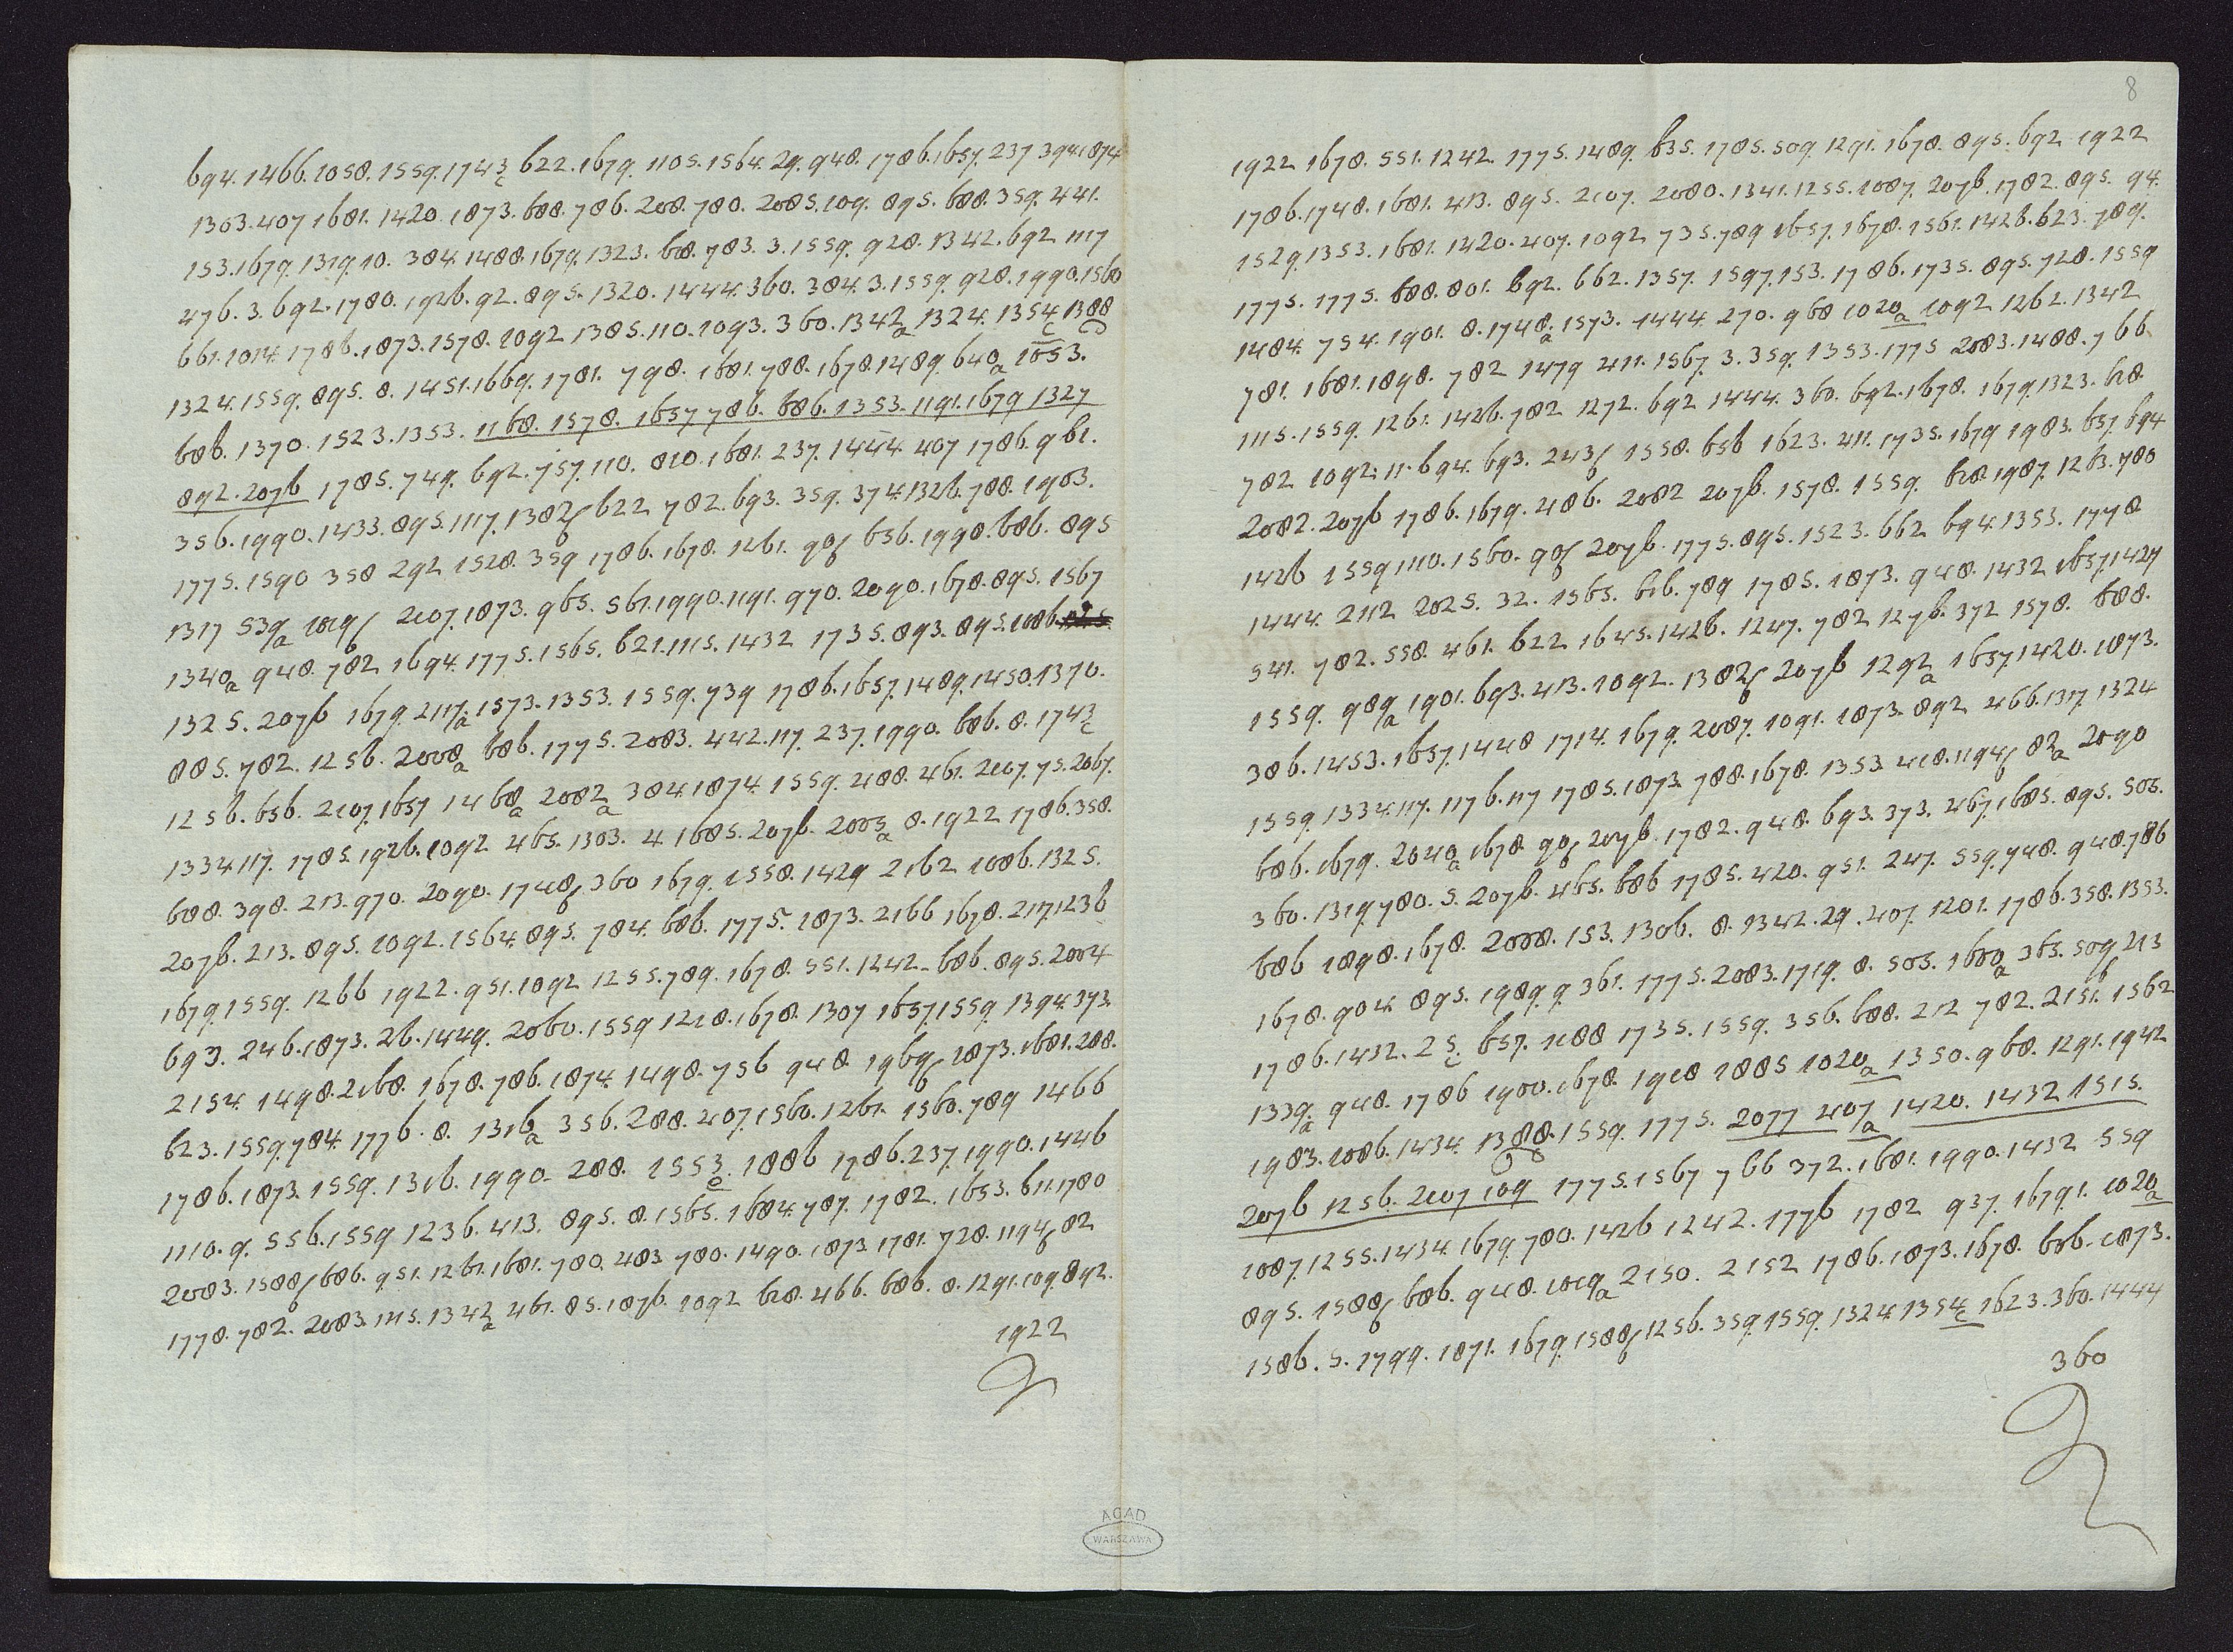 694. 1466. 1058. 1559. 1743c 622. 1679. 1105. 1564. 29. 948. 1786. 1657. 237 394. 1874
1363. 407 1681. 1420. 1873. 688. 786. 208. 780. 2085. 109. 895. 688. 359. 441.
153. 1679. 1319. 10. 384. 1488. 1679. 1323. 68. 783. 3. 1559. 928. 1342. 692 1117
476. 3. 692. 1780. 1926. 92. 895. 1320. 1444. 360. 384. 3. 1559. 928. 1990. 1560
661. 1014. 1786. 1873. 1578. 1092 1385. 110. 1093. 360. 1342a 1324. 1354c 1388
1324. 1559. 895. 8. 1451. 1669. 1781. 798. 1681. 788. 1678. 1489. 640a 1653.
686. 1370. 1523. 1353. 1168. 1578. 1657 786. 686. 1353. 1191. 1679 1327
892. 2076 1785. 749. 692. 757. 110. 810. 1681. 237. 1444. 407 1786. 961.
356. 1990. 1433. 895. 1117. 1382b 622 782. 693. 359. 374. 1326. 788. 1963.
1775. 1590 358 292 1528. 359 1786. 1678. 1261. 90b 656. 1990. 686. 895
1317 539a 1019b 2107. 1873. 965. 561. 1990. 1191. 970. 2090. 1678. 895. 1567
1340a 948. 782 1694. 1775. 1565. 621. 1115. 1432 1735. 893. 895. 1086.
1325. 2076 1679. 2117a 1573. 1353. 1559. 739 1786. 1657. 1489. 1450. 1370.
885. 782. 1256. 2008a 686. 1775. 2083. 442. 117. 237. 1990. 686. 8. 1743c
1256. 656. 2107. 1657 1468a 2082a 384. 1874. 1559. 488. 461. 2107. 75. 2067.
1334. 117. 1785. 1926. 1092 465. 1303. 4 1685. 2076. 2003a 8. 1922 1786. 358.
688. 398. 213. 970. 2090. 1748b 360 1679. 1558. 1429 2162 1086. 1325.
2076. 213. 895. 1092. 1564. 895. 784. 686. 1775. 1873. 2166 1678. 217. 1236
1679. 1559. 1266 1922. 951. 1092 1255. 789. 1678. 551. 1242. 686. 895. 2004
693. 246. 1873. 26. 1449. 2060. 1559 1218. 1678. 1307 1657. 1559. 1394. 373.
2154. 1498. 2168. 1678. 786. 1874. 1498. 756 948 1969b 1873. 1681. 208.
623. 1559. 784. 1776. 8. 1316a 356. 288. 407. 1560. 1261. 1560. 789 1466
1786. 1873. 1559. 1316. 1990. 288. 1553c. 1886 1786. 237. 1990. 1446
1110. 9. 556. 1559 1236. 413. 895. 8. 1565. 1684. 787. 1782. 1653. 611. 1780
2083. 1588b 686. 951. 1261. 1681. 780. 483 780. 1490. 1873. 1781. 728. 1194b 82
1778. 782. 2083. 1115. 1342a 461. 85. 1876. 1092 618. 466. 686. 8. 1291. 109. 892.
1922
8
1922 1678. 551. 1242. 1775. 1489. 635. 1785. 509. 1291. 1678. 895. 692 1922
1786. 1748. 1681. 413. 895. 2107. 2080. 1341. 1255. 1087. 2076. 1782. 895. 94.
1529. 1353. 1681. 1420. 407. 1092 735. 789 1657. 1678. 1561. 1426. 623. 789.
1775. 1775. 688. 801. 692. 662. 1357. 1597. 153. 1786. 1735. 895. 728. 1559
1484. 754. 1901. 8. 1748a. 1573. 1444. 270. 968 1020a 1092 1262. 1342
781. 1681. 1898. 782 1479 411. 1567. 3. 359. 1353. 1775 2083. 1488. 766.
1115. 1559. 1261. 1426. 782 1272. 692 1444. 360. 692. 1678. 1679. 1323. 618.
782 1092. 11. 694. 693. 243b 1558. 656 1623. 411. 1735. 1679 1983. 657. 694
2082. 2076 1786. 1679. 486. 2082 2076. 1578. 1559. 618. 1987. 1263. 780
1426 1559 1110. 1560. 90b 2076. 1775. 895. 1523. 662 694. 1353. 1778
1444. 2112 2025. 32. 1565. 616. 789 1785. 1873. 948. 1432 1657. 1427
541. 782. 558. 461. 622 1645. 1426. 1247. 782 1276. 372 1578. 688.
1559. 989a 1901. 693. 413. 1092. 1382b 2076 1292a 1657. 1420. 1873.
386. 1453. 1657. 1448 1714. 1679. 2087. 1091. 1873. 892 466. 1317. 1324
1559. 1334. 117. 1176. 117 1785. 1873. 788. 1678. 1353 418. 1194b 82a 2090
686. 1679. 2040a 1678 90b 2076. 1782. 948. 693. 373. 467. 1685. 895. 503.
360. 1319. 780. 5. 2076. 465. 686 1785. 420. 951. 247. 559. 748. 948. 786
686 1898. 1678. 2008. 153. 1306. 8. 1342. 29. 407. 1201. 1786. 358. 1353.
1678. 904. 895. 1989. 9. 361. 1775. 2083. 1719. 8. 503. 1680a 363. 509b 213
1786. 1432. 25c. 657. 1188 1735. 1559. 356. 688. 212 782. 2151. 1562
1339a. 948. 1786 1900. 1678. 1918 1885 1020a 1350. 968. 1291. 1942
1983. 1086. 1434. 1388. 1559. 1775. 2077 407a 1420. 1432 1515.
2076 1256. 2107 109 1775. 1567 766 372. 1681. 1990. 1432 559
1087. 1255. 1434. 1679. 780. 1426 1242. 1776 1782 937. 16791. 1020a
895. 1588b 686. 948. 1019a 2150. 2152 1786. 1873. 1678. 686. 1873.
1586. 5. 1799. 1871. 1679. 1588b 1256. 359. 1559. 1324. 1354c 1623. 360. 1444
360
AGAD
WARSZAWA